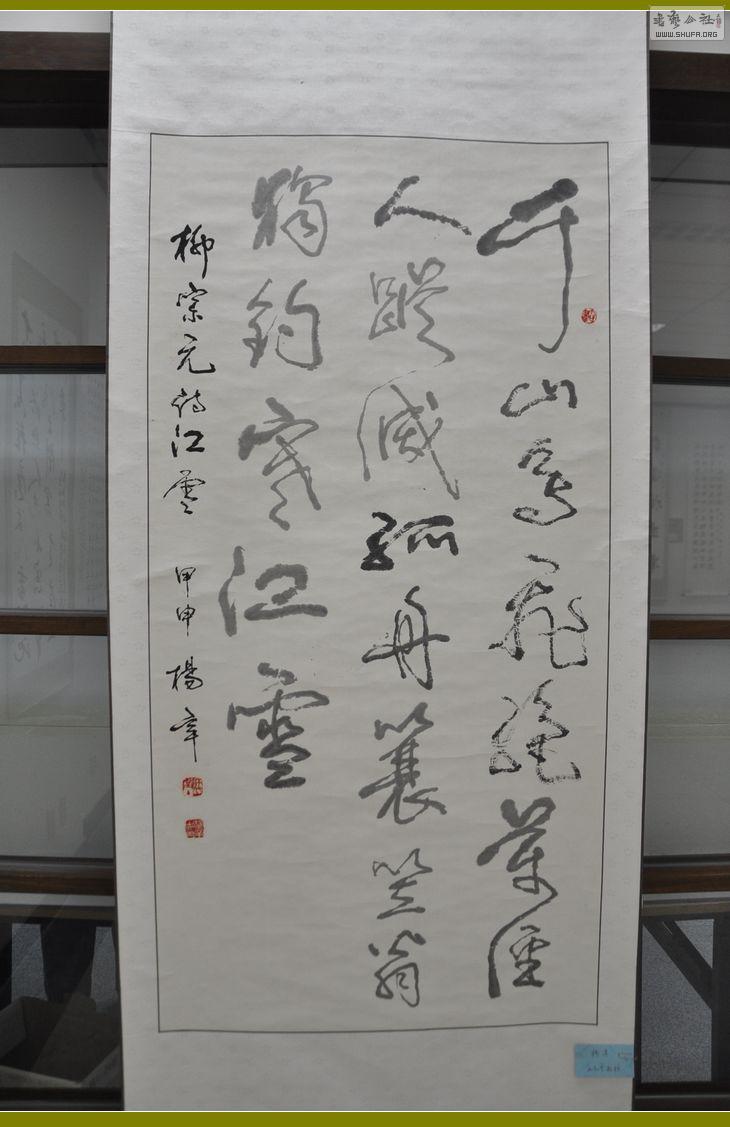 千山鸟飛絶萬徑
人蹤滅孤舟蓑笠翁
獨釣寒江雪
柳宗元詩江雪 甲申 楊章
书艺公社
WWW.SHUFA.ORG